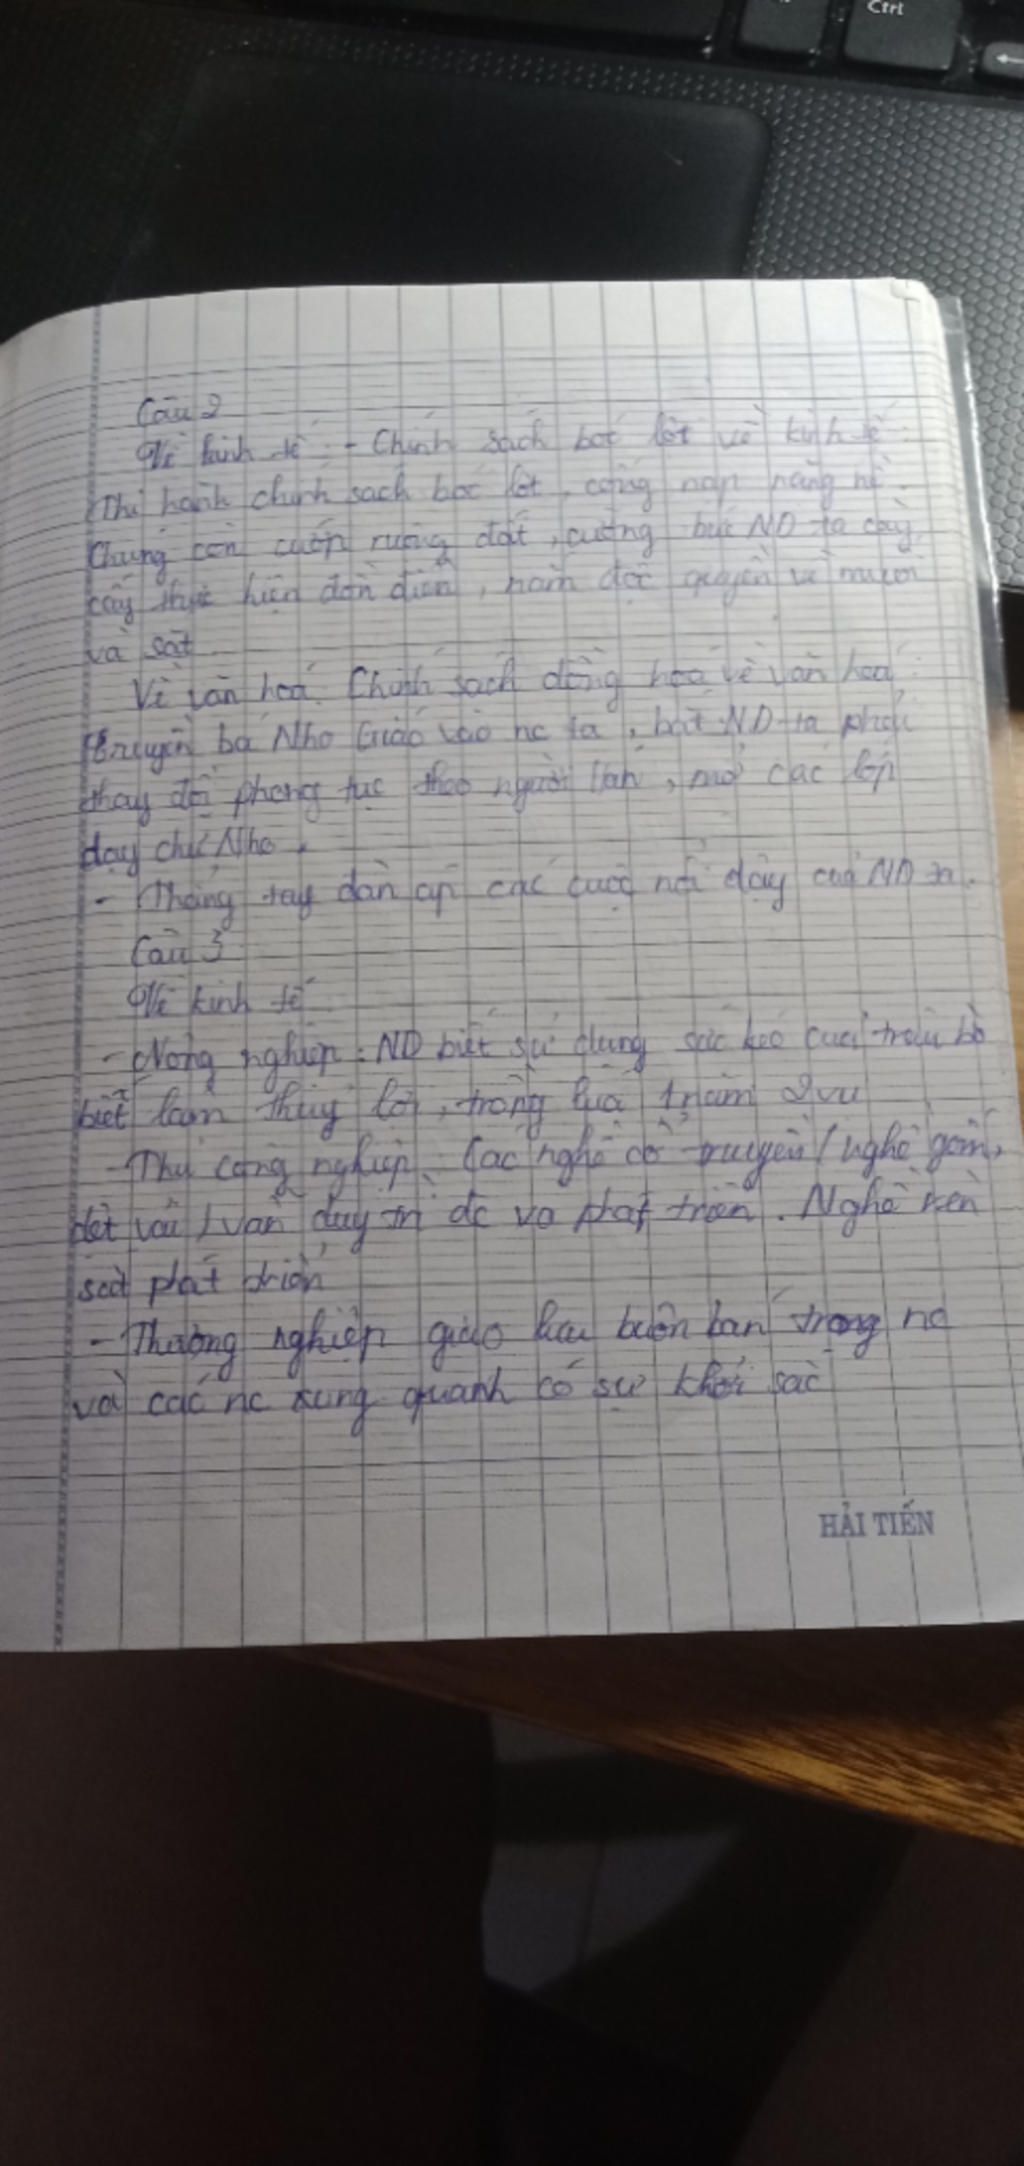 Ctrl
Câu 2
Về kinh tế : - Chính sách bóc lột về kinh tế :
Thi hành chính sách bóc lột, cống nạp nặng nề.
Chúng còn cướp ruộng đất, cưỡng bức ND ta cày
cấy thực hiện đồn điền, nắm độc quyền về muối
và sắt
Về văn hoá Chính sách đồng hoá về văn hoá :
Truyền bá Nho Giáo vào nc ta, bắt ND ta phải
thay đổi phong tục theo người Hán, mở các lớp
dạy chữ Nho.
- Thẳng tay đàn áp các cuộc nổi dậy của ND ta.
Câu 3
Về kinh tế
- Nông nghiệp : ND biết sử dụng sức kéo của trâu bò
biết làm thủy lợi, trồng lúa 1 năm 2 vụ
- Thủ công nghiệp. Các nghề cổ truyền ( nghề gốm,
dệt vải ) vẫn duy trì đc và phát triển. Nghề rèn
sắt phát triển
- Thương nghiệp giao lưu buôn bán trong nc
và các nc xung quanh có sự khởi sắc
HẢI TIẾN